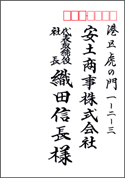 港区虎の門一-二-三
安土商事株式会社
代表取締役
社長
織田信長様